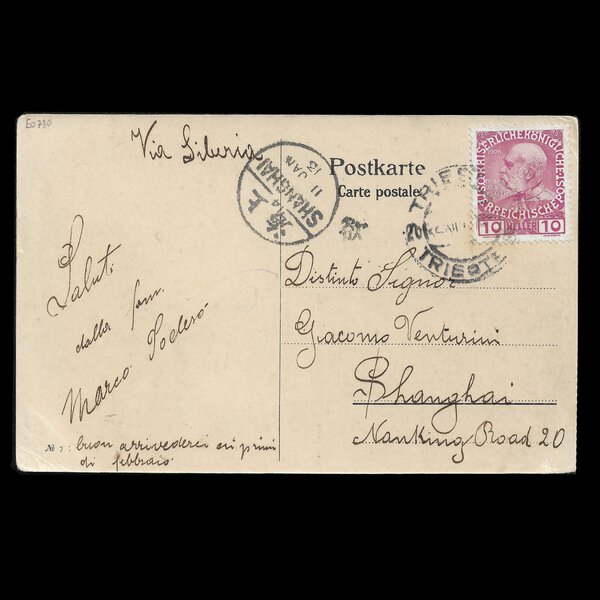 E0780
Via Siberia
上海
SHANGHAI
11 JAN
13
Postkarte
Carte postale
TRIEST
20
XII
TRIESTE
KAISERLICHE KÖNIGLICHE
ÖSTERREICHISCHE
1908
10 HELLER 10
Distinto Signor
Giacomo Venturini
Shanghai
Nanking Road 20
Saluti
dalla fam.
Marco Todesó
№ 7
buon arrivederci ai primi
di febbraio